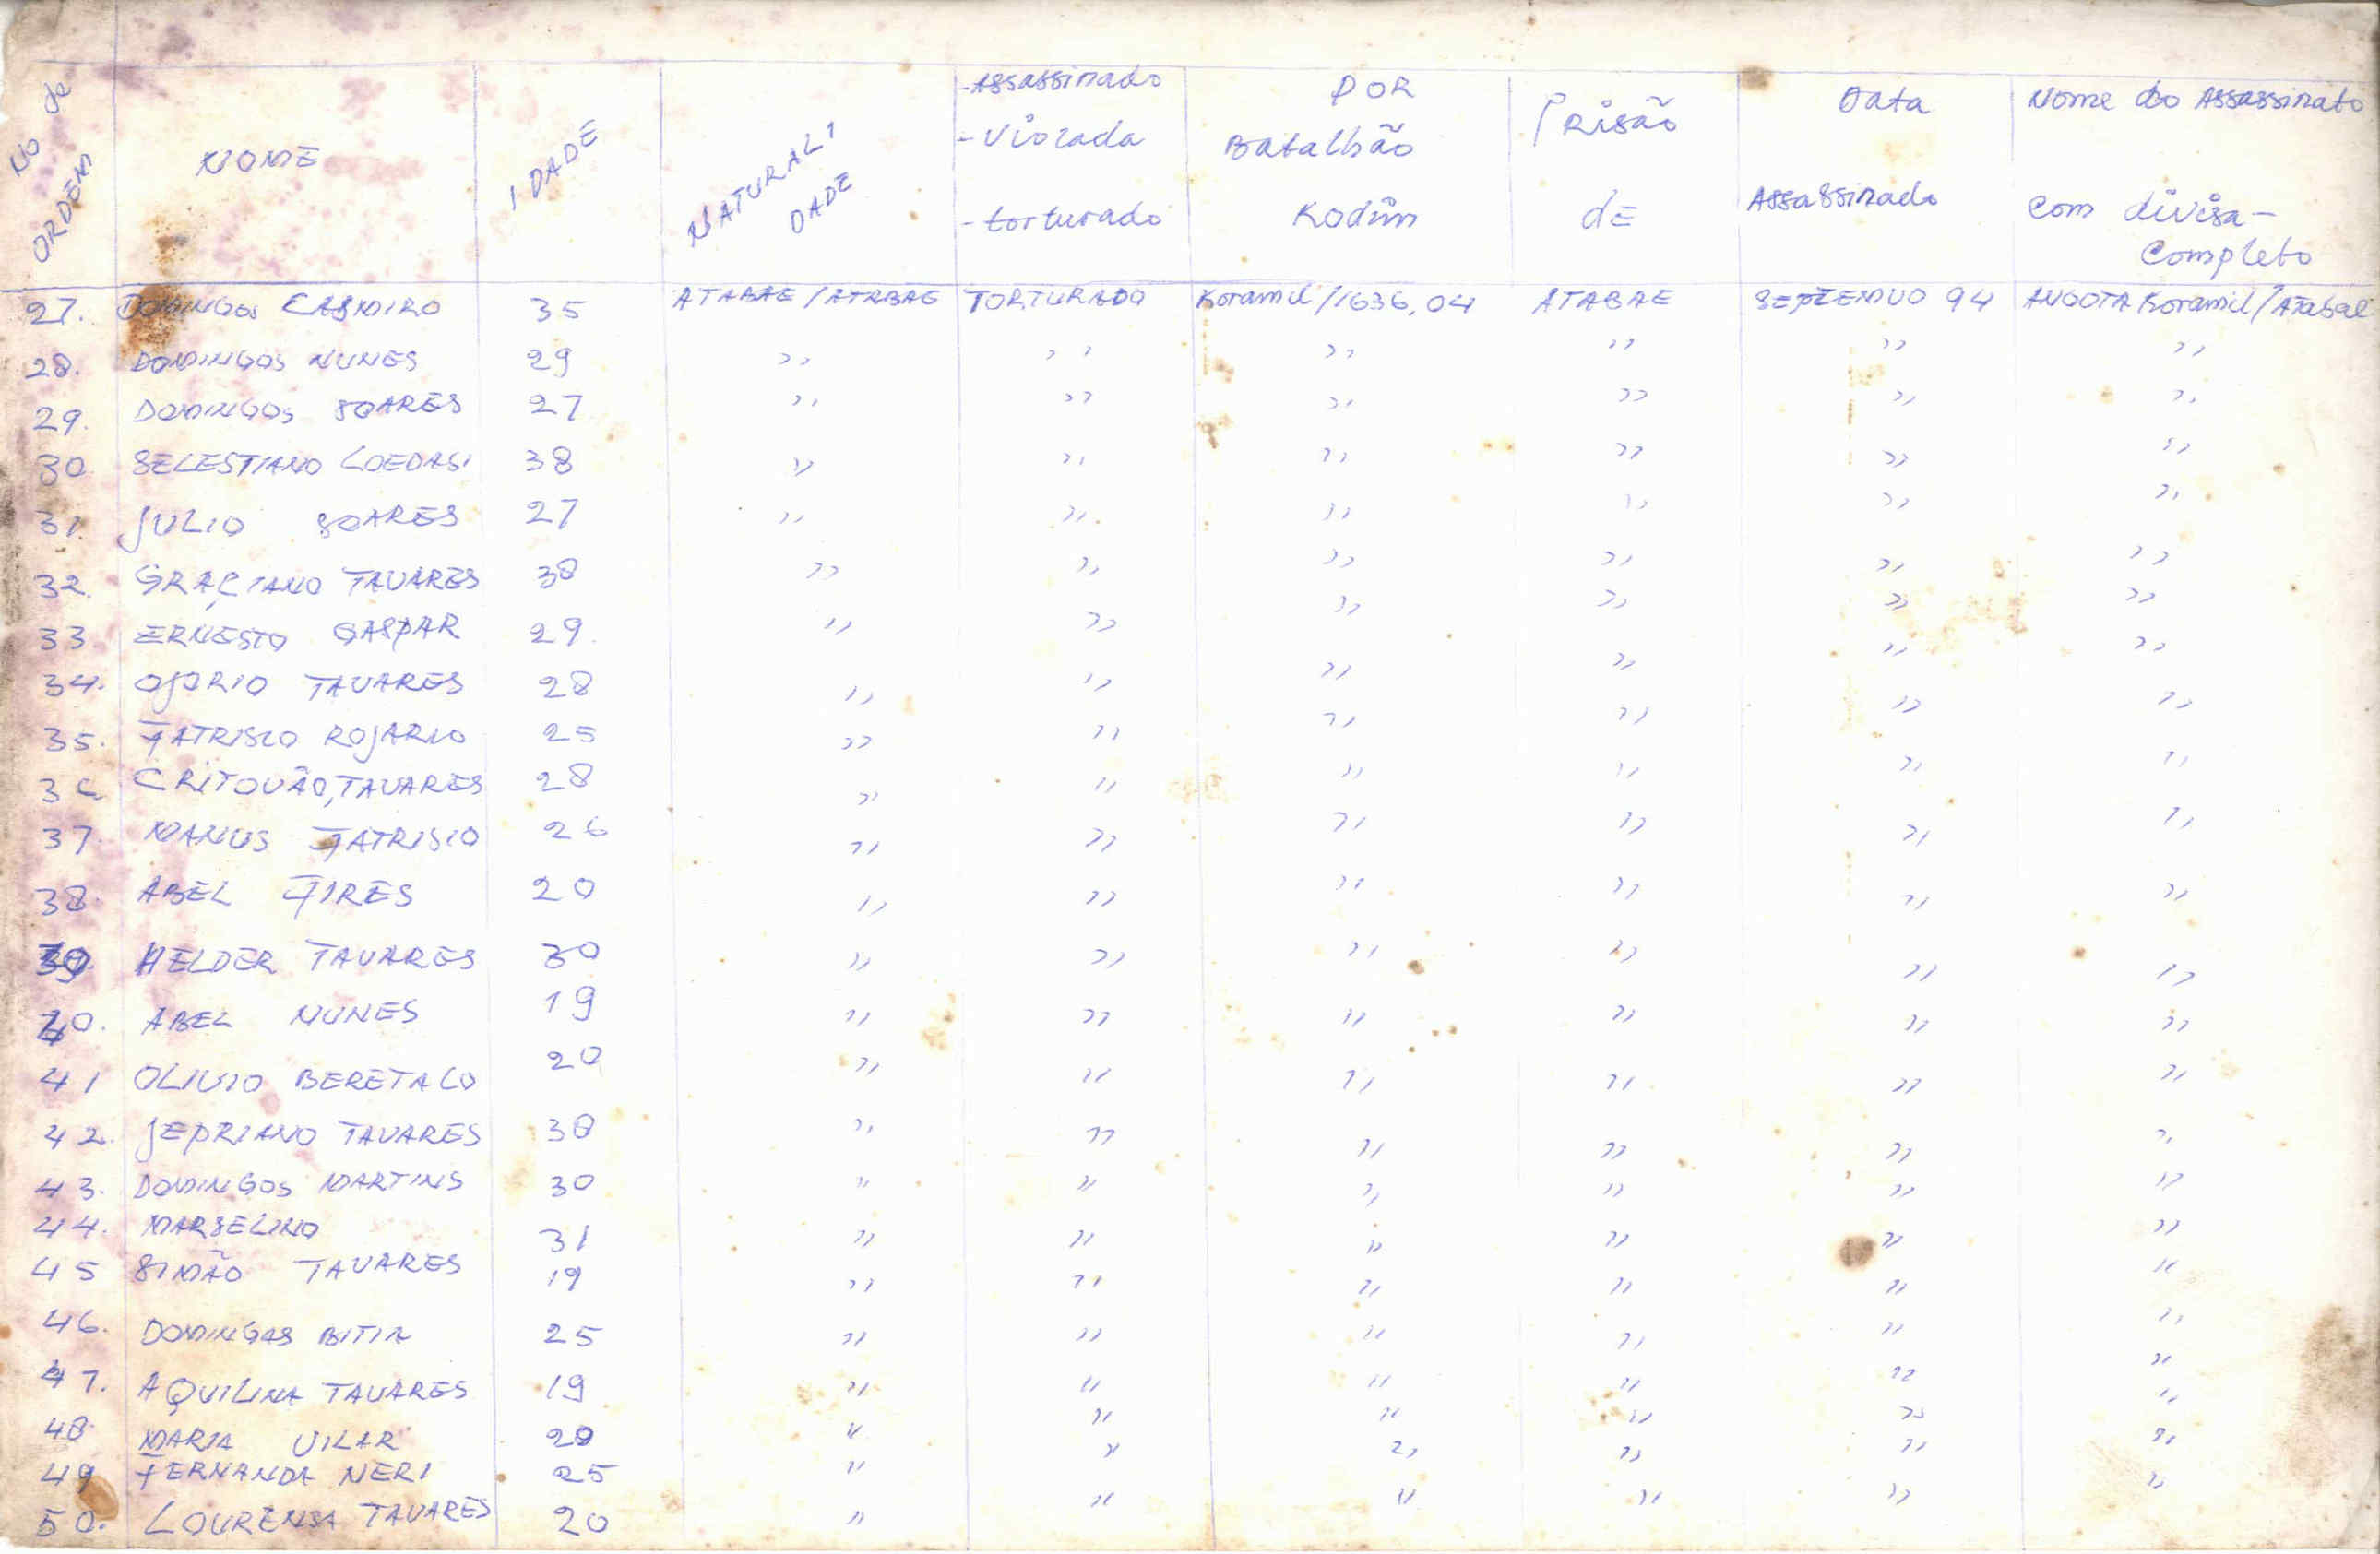 No de ORDEM NOME IDADE NATURALIDADE -Assassinado -Violada -torturado POR Batalhão Kodim Prisão dE Data Assassinado Nome do Assassinato com divisa-Completo
27. DOMINGOS CASMIRO 35 ATABAE/ATABAE TORTURADO Koramil/1636,04 ATABAE SEPTEMVO 94 ANGOTA Koramil/Atabae
28. DOMINGOS NUNES 29 ,, ,, ,, ,, ,, ,,
29. DOMINGOS SOARES 27 ,, ,, ,, ,, ,, ,,
30. SELESTIANO LOEDASI 38 ,, ,, ,, ,, ,, ,,
31. JULIO SOARES 27 ,, ,, ,, ,, ,, ,,
32. GRAÇIANO TAVARES 38 ,, ,, ,, ,, ,, ,,
33. ERNESTO GASPAR 29. ,, ,, ,, ,, ,, ,,
34. OJORIO TAVARES 28 ,, ,, ,, ,, ,, ,,
35. FATRISIO ROJARIO 25 ,, ,, ,, ,, ,, ,,
36 CRITOVÃO, TAVARES 28 ,, ,, ,, ,, ,, ,,
37. MANUS FATRISIO 26 ,, ,, ,, ,, ,, ,,
38. ABEL FIRES 20 ,, ,, ,, ,, ,, ,,
39. HELDER TAVARES 30 ,, ,, ,, ,, ,, ,,
40. ABEL NUNES 19 ,, ,, ,, ,, ,, ,,
41 OLIVIO BERETALO 20 ,, ,, ,, ,, ,, ,,
42. JEPRIANO TAVARES 38 ,, ,, ,, ,, ,, ,,
43. DOMINGOS MARTINS 30 ,, ,, ,, ,, ,, ,,
44. MARSELINO 31 ,, ,, ,, ,, ,, ,,
45 SIMÃO TAVARES 19 ,, ,, ,, ,, ,, ,,
46. DOMINGAS BITIN 25 ,, ,, ,, ,, ,, ,,
47. AQUILINA TAVARES 19 ,, ,, ,, ,, ,, ,,
48. MARIA VILAR 20 ,, ,, ,, ,, ,, ,,
49 FERNANDA NERI 25 ,, ,, ,, ,, ,, ,,
50. LOURENSA TAVARES 20 ,, ,, ,, ,, ,, ,,